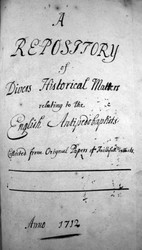 A
REPOSITORY
of
Divers Historical Matters
relating to the
English Antipedobaptists
Collected from Original Papers & Faithfull
Anno 1712